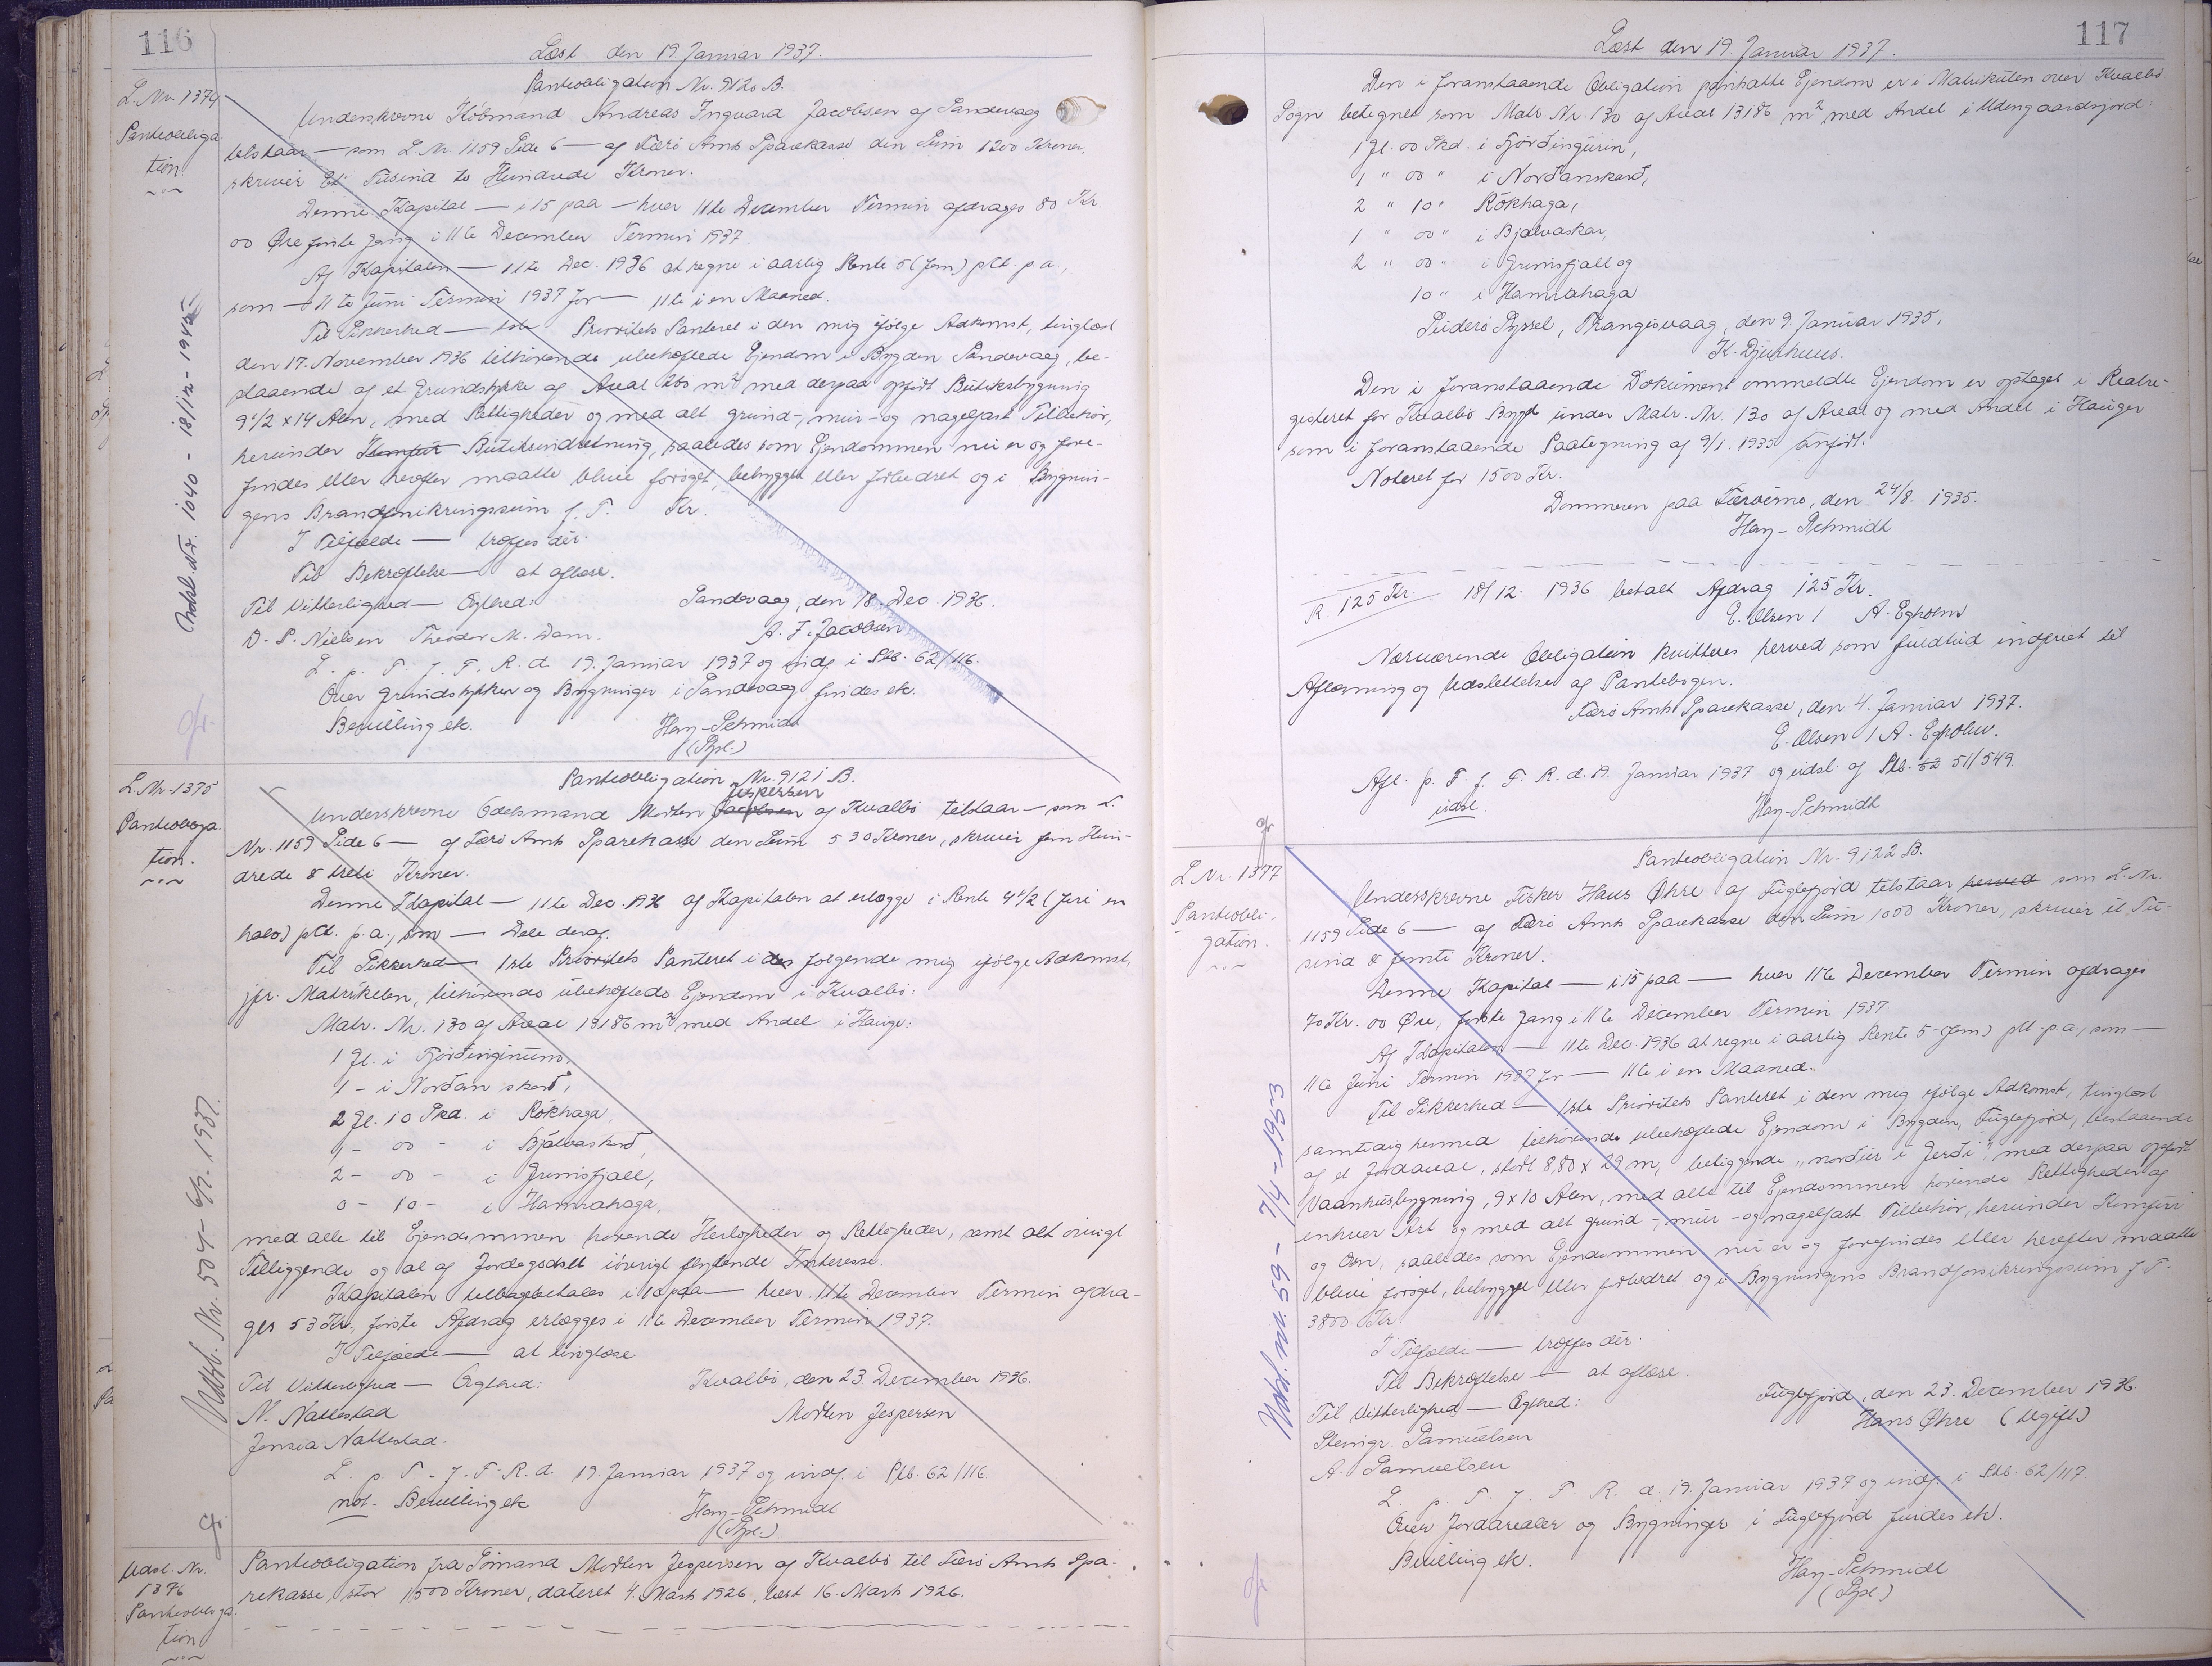 116
Læst den 19 Januar 1937.
Panteobligation Nr. 9120 B.
L. Nr. 1374
Panteobliga
tion
Underskrevne Købmand Andreas Ingvard Jacobsen af Sandevaag
tilstaar — som L. Nr. 1159 Side 6 — af Færø Amts Sparekasse den Sum 1200 Kroner,
skriver Et Tusind to Hundrede Kroner.
Denne Kapital — i 15 paa — hver 11te December Termin afdrages 80 Kr.
00 Øre første Gang i 11te December Termin 1937.
Af Kapitalen — 11te Dec. 1936 at regne i aarlig Rente 5 (fem) pCt. p a.,
som — 11te Juni Termin 1937 for — 11te i en Maaned.
Til Sikkerhed — 1ste Prioritets Panteret i den mig ifølge Adkomst, tinglæst
den 17. November 1936 tilhørende ubehæftede Ejendom i Bygden Sandevaag, be-
staaende af et Grundstykke af Areal m² med derpaa opført Butiksbygning
9 1/2 x 14 Alen, med Rettigheder og med alt grund-, mur- og nagelfast Tilbehør,
herunder Komfur Butiksindretning, saaledes som Ejendommen nu er og fore-
findes eller herefter maatte blive forøget, bebygget eller forbedret og i Bygnin-
gens Brandforsikringssum f. T. Kr.
I Tilfælde — træffes dér.
Til Bekræftelse — at aflæse.
Til Vitterlighed — Ægthed: Sandevaag, den 18. Dec. 1936.
D. P. Nielsen Theodor M. Dam. A. I. Jacobsen
L. p. T. f. F. R. d. 19. Januar 1937 og indf. i Ptb. 62/116.
Over Grundstykker og Bygninger i Sandevaag findes ek.
Bevilling ek. Hay-Schmidt
(Spl.)
Udsl. Nr. 1040 - 18/12 - 1945
gr.
Panteobligation Nr. 9121 B.
L. Nr. 1375
Panteobliga
tion.
Jespersen
Underskrevne Odelsmand Morten Jacobsen af Kvalbø tilstaar — som L.
Nr. 1159 Side 6 — af Færø Amts Sparekasse den Sum 530 Kroner, skriver fem Hun-
drede & treti Kroner.
Denne Kapital — 11te Dec. 1936 af Kapitalen at erlægge i Rente 4 1/2 (fire en
halv) pCt. p. a., som — Dele deraf.
Til Sikkerhed — 1ste Prioritets Panteret i des følgende mig ifølge Adkomst,
jfr. Matrikelen, tilhørende ubehæftede Ejendom i Kvalbø:
Matr. Nr. 130 af Areal 13186 m² med Andel i Hauge:
1 Gl. i Fjórðinginum,
1 - i Norðanskarð,
2 Gl. 10 Skd. i Rókhaga,
1 - 00 - i Bjálvaskarð,
2 - 00 - i Grimsfjall,
0 - 10 - i Hamrahaga,
med alle til Ejendommen hørende Herligheder og Rettigheder, samt alt øvrigt
Tilliggende og al af Jordegodset iøvrigt flydende Interesse.
Kapitalen tilbagebetales i 10 paa — hver 11te December Termin afdra-
ges 53 Kr., første Afdrag erlægges i 11te December Termin 1937.
I Tilfælde — at tinglæse
Til Vitterlighed — Ægthed: Kvalbø, den 23. December 1936.
N. Nattestad Morten Jespersen
Jensia Nattestad.
L. p. T. f. F. R. d. 19. Januar 1937 og indf. i Ptb. 62/116.
not. Bevilling ek Hay-Schmidt
(Spl.)
Udsl. Nr. 504 - 6/7. 1937.
gr.
Udsl. Nr.
1376
Panteobliga
tion
Panteobligation fra Sømand Morten Jespersen af Kvalbø til Færø Amts Spa-
rekasse, stor 1500 Kroner, dateret 4. Marts 1926, læst 16. Marts 1926.
117
Læst den 19. Januar 1937.
Den i foranstaaende Obligation pantsatte Ejendom er i Matrikulen over Kvalbø
Sogn betegnet som Matr. Nr. 130 af Areal 13186 m² med Andel i Udengaardsjord:
1 Gl. 00 Skd. i Fjórðingurin,
1 " 00 " i Norðanskarð,
2 " 10 " Rókhaga,
1 " 00 " i Bjalvaskar,
2 " 00 " i Grimsfjall og
10 " i Hamrahaga
Suderø Syssel, Trangisvaag, den 9. Januar 1935.
K. Djurhuus.
Den i foranstaaende Dokument ommeldte Ejendom er optaget i Realre-
gisteret for Kvalbø Bygd under Matr. Nr. 130 af Areal og med Andel i Hauger
som i foranstaaende Paategning af 9/1. 1935 anført.
Noteret for 1500 Kr.
Dommeren paa Færøerne, den 24/8. 1935.
Hay-Schmidt
R. 125 Kr. 18/12. 1936 betalt Afdrag 125 Kr.
E. Olsen / A. Egholm
Nærværende Obligation kvitteres herved som fuldtud indfriet til
Aflæsning og Udslettelse af Pantebogen.
Færø Amts Sparekasse, den 4. Januar 1937.
E. Olsen / A. Egholm.
Afl. p. T. f. F. R. d. 19. Januar 1937 og udsl. af Ptb. 52 51/549
udsl. Hay-Schmidt
gr
Panteobligation Nr. 9122 B.
L. Nr. 1377
Panteobli-
gation.
Underskrevne Fisker Hans Øhre af Fuglefjord tilstaar herved som L. Nr.
1159 Side 6 — af Færø Amts Sparekasse den Sum 1050 Kroner, skriver et Tu-
sind & femti Kroner.
Denne Kapital — i 15 paa — hver 11te December Termin afdrages
70 Kr. 00 Øre, første Gang i 11te December Termin 1937.
Af Kapitalen — 11te Dec. 1936 at regne i aarlig Rente 5 (fem) pCt. p a, som —
11te Juni Termin 1937 for — 11te i en Maaned.
Til Sikkerhed — 1ste Prioritets Panteret i den mig ifølge Adkomst, tinglæst
samtidig hermed tilhørende ubehæftede Ejendom i Bygden, Fuglefjord, bestaaende
af et Jordareal, stort 8,80 x 29 m, beliggende „norður i Gerði", med derpaa opført
Vaaningshusbygning, 9 x 10 Alen, med alle til Ejendommen hørende Rettigheder af
enhver Art og med alt grund-, mur- og nagelfast Tilbehør, herunder Komfur
og Ovn, saaledes som Ejendommen nu er og forefindes eller herefter maatte
blive forøget, bebygget eller forbedret og i Bygningens Brandforsikringssum f. T.
3800 Kr
I Tilfælde — træffes dér.
Til Bekræftelse — at aflæse.
Til Vitterlighed — Ægthed: Fuglefjord, den 23. December 1936
Steingr. Samuelsen Hans Øhre (Ugift)
A. Samuelsen
L. p. T. f. F. R. d. 19. Januar 1937 og indf. i Ptb. 62/117.
Over Jordarealer og Bygninger i Fuglefjord findes ek.
Bevilling ek. Hay-Schmidt
(Spl.)
Udsl. nr. 59 - 7/4 - 1953
gr